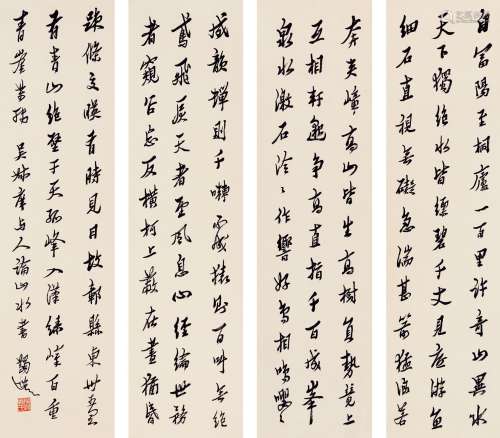 自富陽至桐廬一百里許奇山異水
天下獨絕水皆縹碧千丈見底游魚
細石直視無礙急湍甚箭猛浪若
奔夾嶂高山皆生高樹負勢競上
互相軒邈爭高直指千百成峯
泉水激石泠〻作響好鳥相鳴嚶〻
成韻蟬則千囀不窮猿則百叫無絕
鳶飛戾天者望風息心經綸世務
者窺谷忘反橫柯上蔽在晝猶昏
疎條交暎有時見日故鄣縣東卅五里
有青山絕壁干天孤峰入漢綠嶂百重
青崖萬轉 吳叔庠與人論山水書